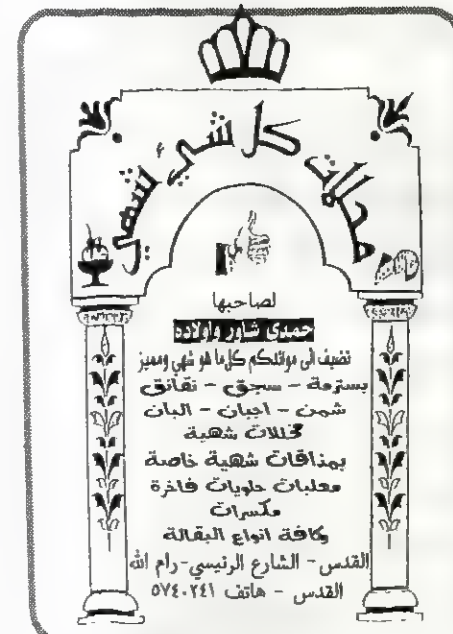 محلات كل شيء شهي
لصاحبها
حمدي شاور واولاده
نضيف الى موائدكم كل ما هو شهي ومميز
بسترمة - سجق - نقانق
شمن - اجبان - البان
مخللات شهية
بمذاقات شهية خاصة
معلبات حلويات فاخرة
مكسرات
وكافة انواع البقالة
القدس - الشارع الرئيسي - رام الله
القدس - هاتف ٥٧٤٠٢٤١